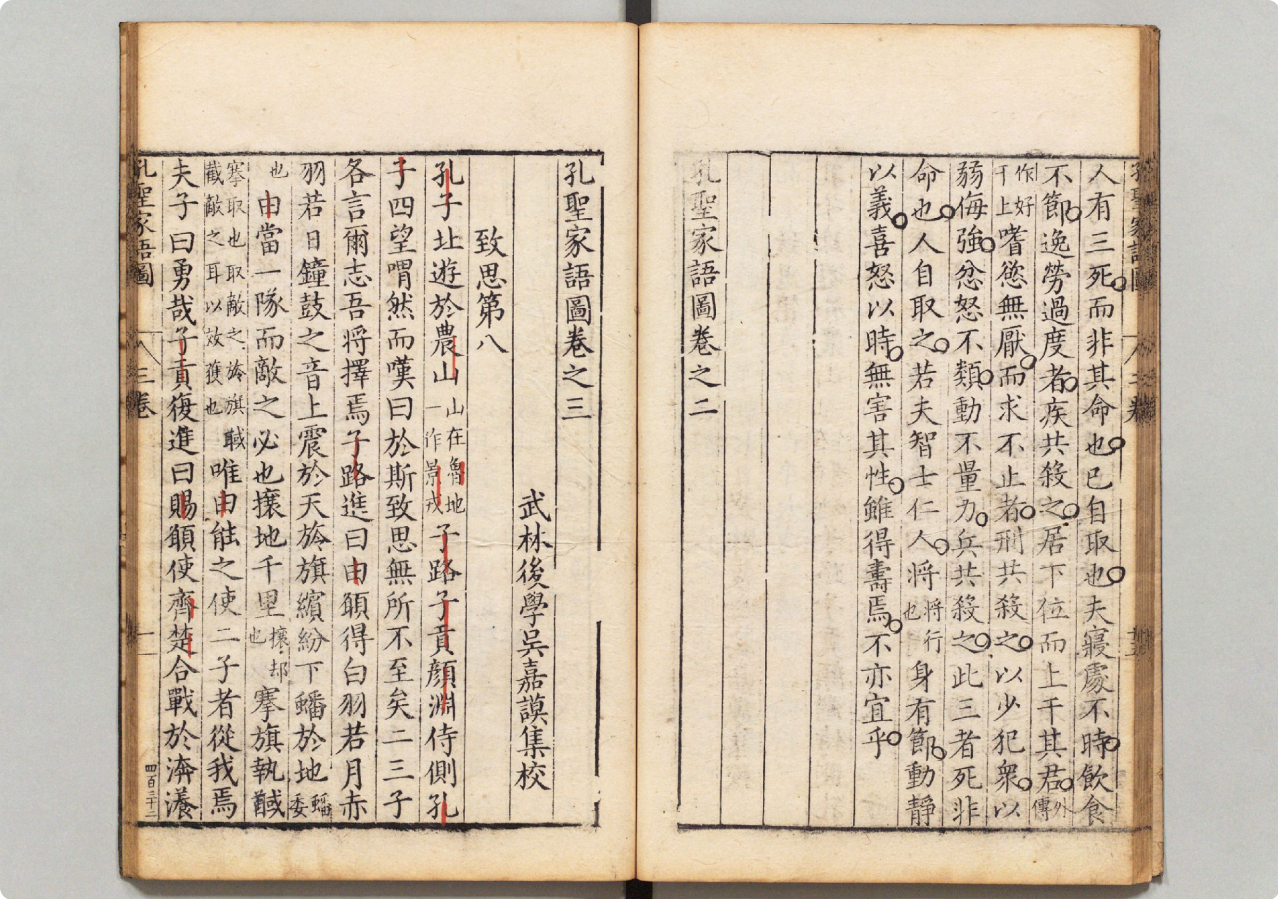 人有三死而非其命也已自取也夫寢處不時飲食
不節逸勞過度者疾共殺之居下位而上干其君外傳
作好干上嗜慾無厭而求不止者刑共殺之以少犯衆以
弱侮強忿怒不類動不量力兵共殺之此三者死非
命也人自取之若夫智士仁人將將行也身有節動靜
以義喜怒以時無害其性雖得壽焉不亦宜乎
孔聖家語圖卷之二
孔聖家語圖卷之三
武林後學吳嘉謨集校
致思第八
孔子北遊於農山山在魯地一作景戎子路子貢顏淵侍側孔
子四望喟然而嘆曰於斯致思無所不至矣二三子
各言爾志吾將擇焉子路進曰由願得白羽若月赤
羽若日鐘鼓之音上震於天旍旗繽紛下蟠於地蟠委
也由當一隊而敵之必也攘地千里攘却也搴旗執馘
搴取也取敵之旍旗馘截敵之耳以效獲也唯由能之使二子者從我焉
夫子曰勇哉子貢復進曰賜願使齊楚合戰於漭瀁
孔聖家語圖
三卷
一
四百三十二